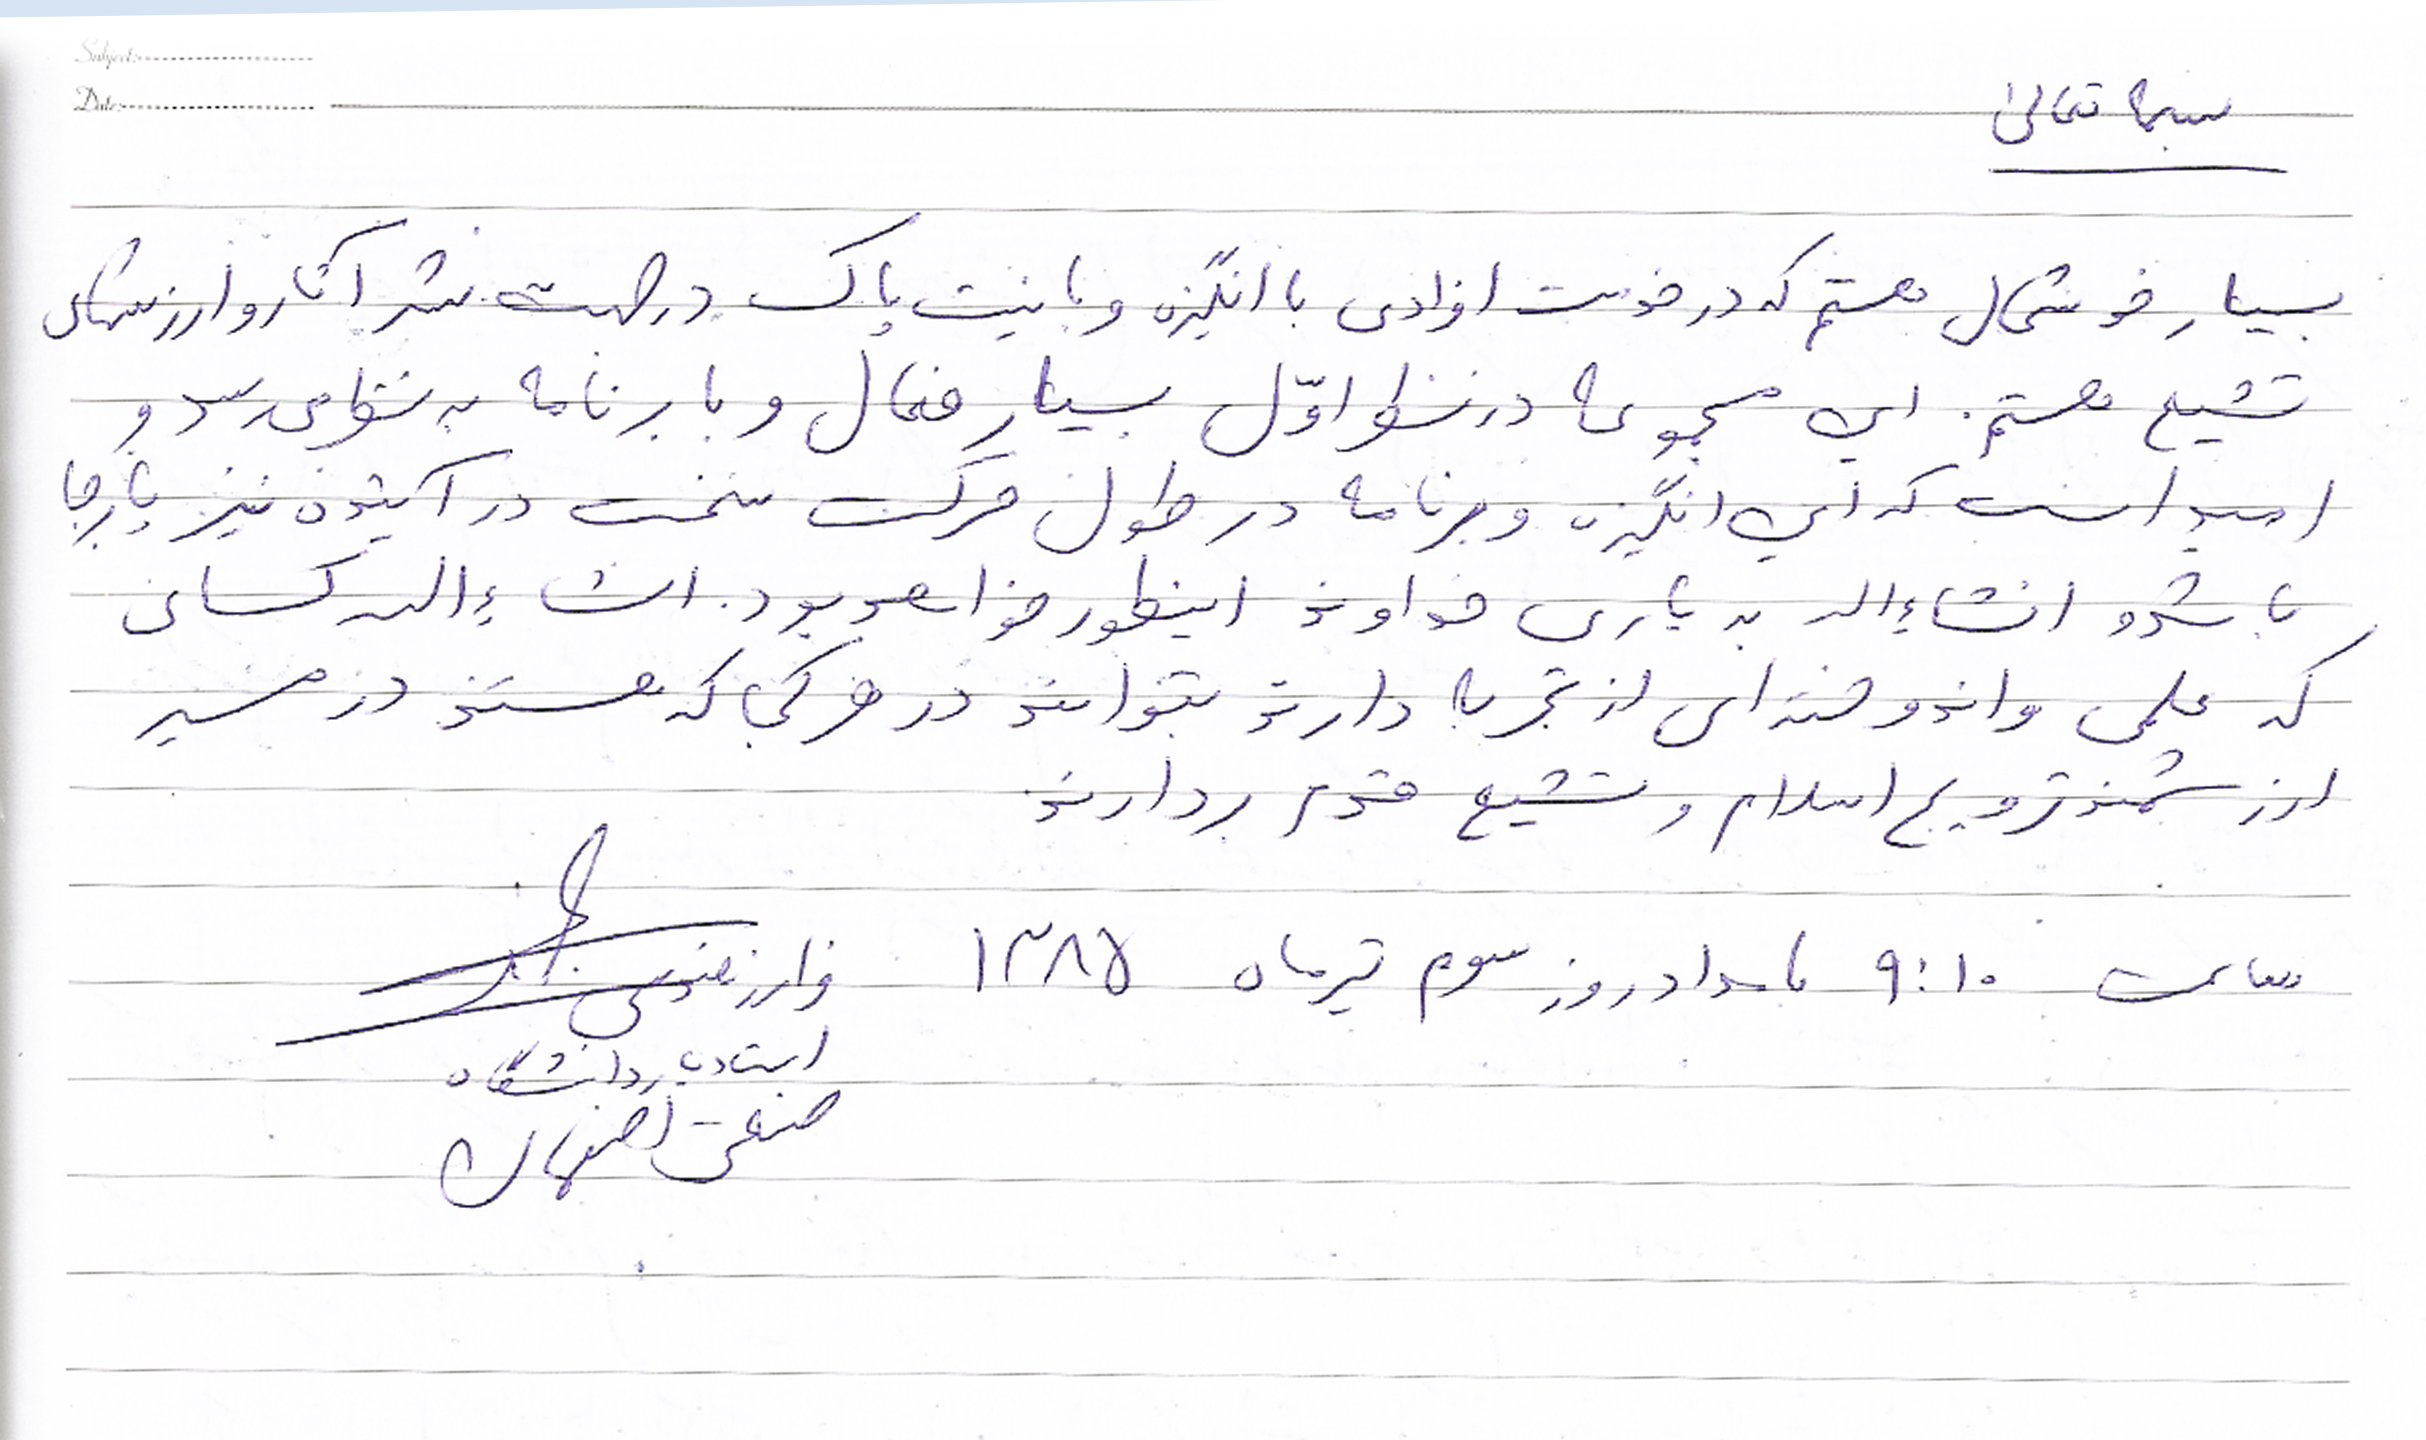 Subject:
Date:
بسمه تعالی
بسیار خوشحال هستم که در خدمت افرادی با انگیزه و با نیت پاک در جهت نشر آثار و ارزشهای
تشیع هستم. این مجموعه در نظر اوّل بسیار فعال و با برنامه به نظر می رسد و
امید است که این انگیزه و برنامه در طول حرکت سخت در آینده نیز پا برجا
باشد و انشاءالله به یاری خداوند اینطور خواهد بود. انشاءالله کسانی
که علمی و اندوخته ای از تجربه دارند بتوانند در هر کجا که هستند در مسیر
ارزشمند ترویج اسلام و تشیع قدم بردارند
ساعت ۹:۱۰ بامداد روز سوم تیرماه ۱۳۸۵
فرامرز
استادیار دانشگاه
صنعتی اصفهان